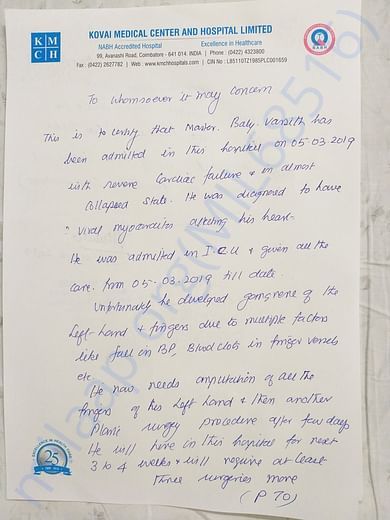 KOVAI MEDICAL CENTER AND HOSPITAL LIMITED
NABH Accredited Hospital Excellence in Healthcare
99, Avanashi Road, Coimbatore - 641 014. INDIA | Phone : (0422) 4323800
Fax : (0422) 2627782 | Web : www.kmchhospitals.com | CIN No : L85110TZ1985PLC001659
K M
C H
NABH
To whomsoever it may concern
This is to certify that Master. Baby. Varsith has
been admitted in this hospital on 05-03-2019
with severe Cardiac failure & in almost
Collapsed State. He was diagnosed to have
viral myocarditis affecting his heart-
He was admitted in I.C.U & given all the
care. from 05-03-2019 till date.
Unfortunately he developed gangrene of the
Left Hand & fingers due to multiple factors
like fall in BP, Blood clots in finger vessels
etc
He now needs amputation of all the
fingers of his Left Hand & then another
Plastic surgery procedure after few days
He will be here in this hospital for next
3 to 4 weeks & will require at least
three surgeries more
(P TO)
25
milaap.org(MIL68516)